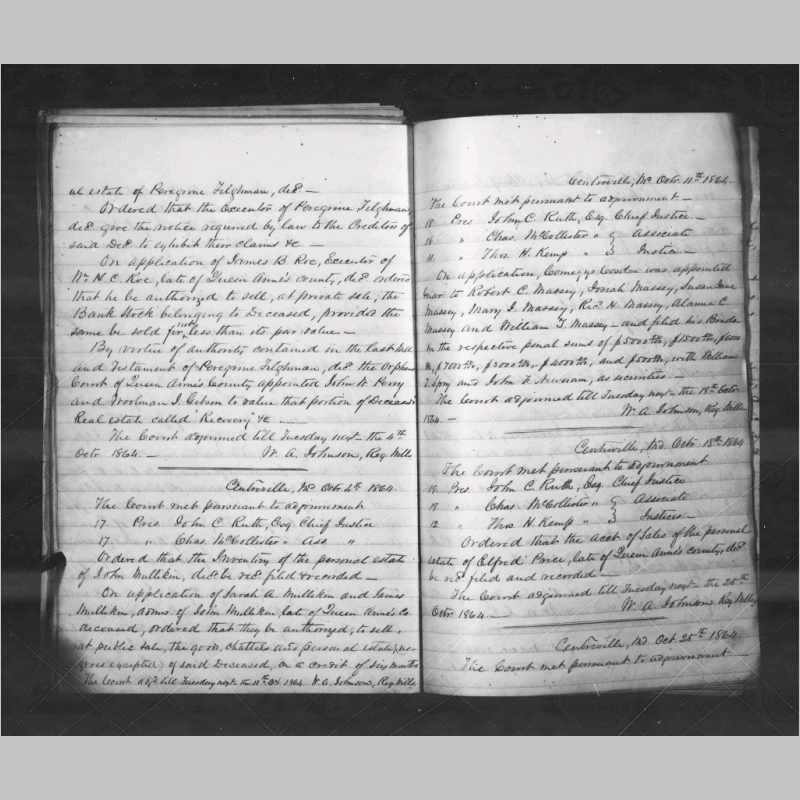 al estate of Peregrine Tilghman, decd —
Ordered that the executor of Peregrine Tilghman,
decd give the notice required by law to the Creditors of
said Decd to exhibit their claims &c —
On application of James B. Roe, Executor of
Wm H. C. Roe, late of Queen Anne's county, decd ordered
that he be authorized to sell, at private sale, the
Bank Stock belonging to Deceased, provided the
same be sold for not less than its par value —
By virtue of authority contained in the last Will
and Testament of Peregrine Tilghman, decd the Orphans
Court of Queen Anne's County appointed John W. Perry
and Woolman J. Gibson to value that portion of Deceased's
Real estate called "Recovery" &c. —
The Court adjourned till Tuesday next the 4th
Octr 1864. — W. A. Johnson, Reg Wills
Centreville, Md Octr 4th 1864.
The Court met pursuant to adjournment
17. Pres John C. Ruth, Esq Chief Justice
17. " Chas. McCollister " Ass. "
Ordered that the Inventory of the personal estate
of John Mulliken, decd be recd filed & recorded —
On application of Sarah A Mulliken and James
Mulliken, admrs. of John Mulliken, late of Queen Anne's Co
deceased, ordered that they be authorized, to sell,
at public sale, the goods, chattels and personal estate, (ne-
groes excepted) of said Deceased, on a credit of six months
The Court adjd till Tuesday next the 11th Oct 1864. W. A. Johnson, Reg Wills
Centreville, Md Octr 11th 1864.
The Court met pursuant to adjournment —
18 Pres John C. Ruth, Esq Chief Justice —
18 " Chas. McCollister " } Associate
11 " Thos H. Kemp " } Justices —
On application, was appointed
to Robert C. Massey, Josiah Massey, Susan Jane
Massey, Mary I. Massey, H. Massey, Alanna C
Massey and William T. Massey — and filed his Bonds
in the respective penal sums of
and John Newnam, as securities. —
The Court adjourned till Tuesday next — the 18th Octr
1864. — W. A. Johnson, Reg Wills
Centreville, Md Octr 18th 1864
The Court met pursuant to adjournment
19 Pres John C. Ruth, Esq Chief Justice
19 " Chas. McCollister " } Associate
12 " Thos H. Kemp " } Justices —
Ordered that the acct of Sales of the personal
estate of Elfred Price, late of Queen Anne's county, decd
be recd filed and recorded —
The Court adjourned till Tuesday next — the 25th
Octr 1864. — W. A. Johnson Reg Wills
Centreville, Md Oct 25th 1864.
The Court met pursuant to adjournment —